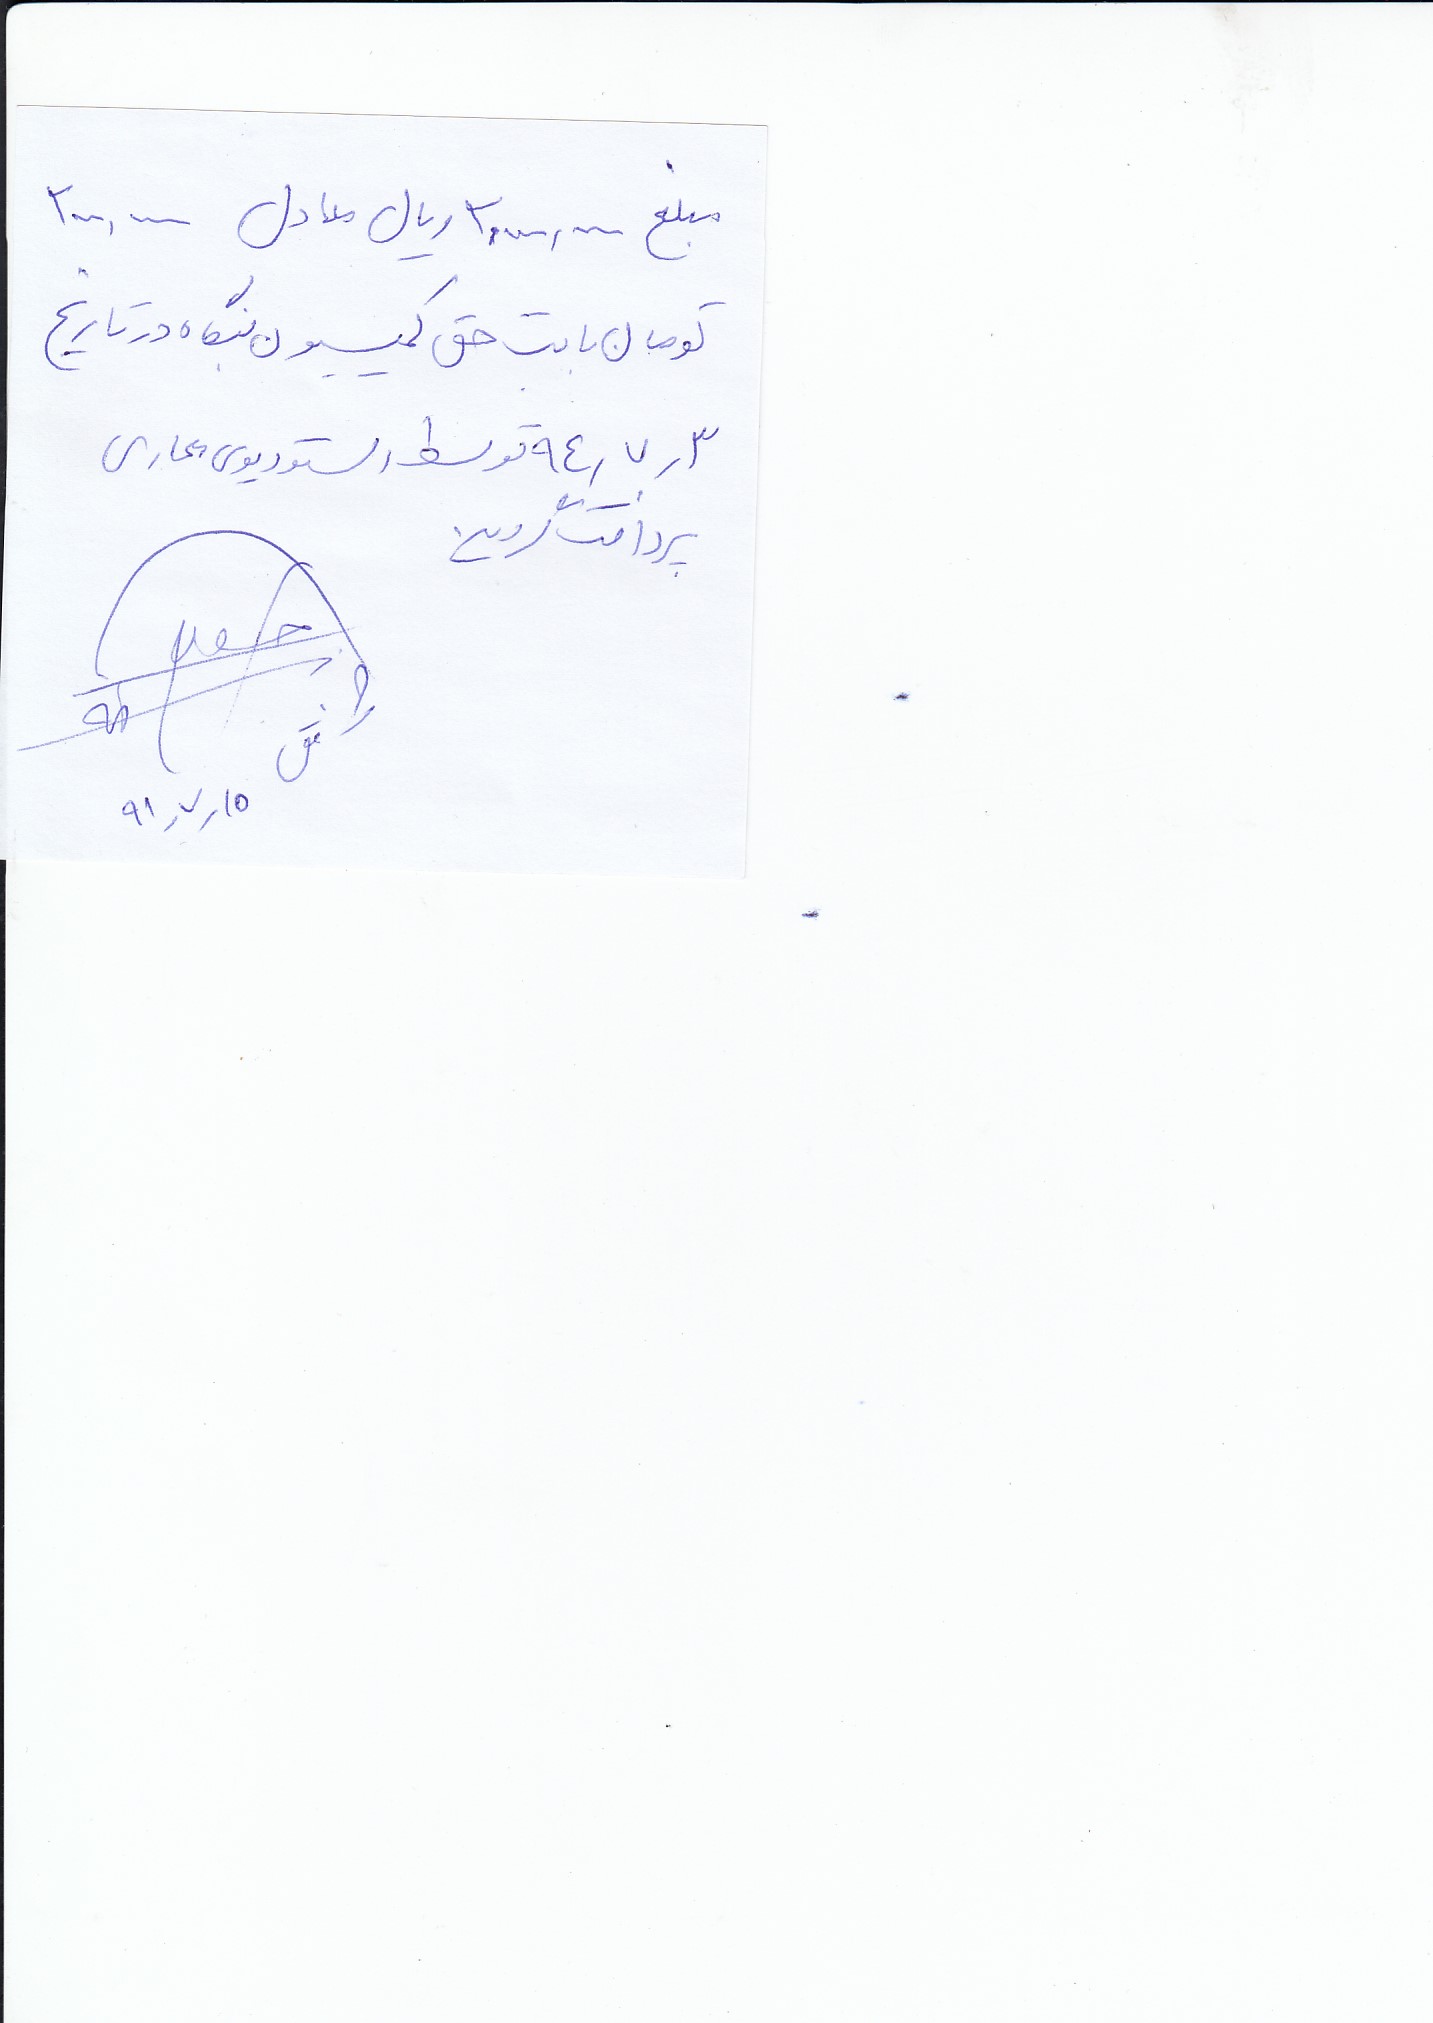 مبلغ ۲,۰۰۰,۰۰۰ ریال معادل ۲۰۰,۰۰۰
تومان بابت حق کمیسیون بنگاه در تاریخ
۹٤/۷/۳ توسط استودیوی معماری
پرداخت گردید.
۹۱/۷/۱۵